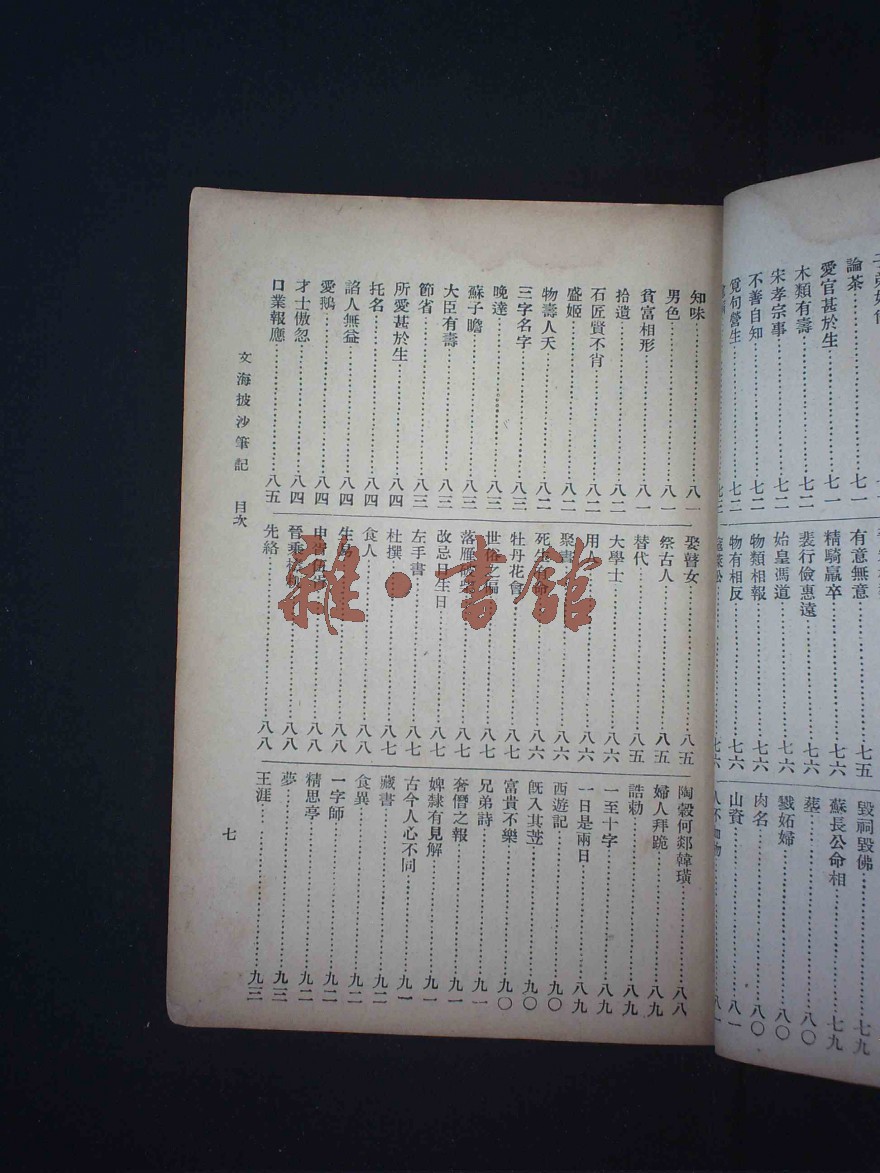 論茶……七一
愛官甚於生……七一
木類有壽……七二
宋孝宗事……七二
不善自知……七二
覓句營生……七二
七三
有意無意……七五
精騎羸卒……七六
裴行儉惠遠……七六
始皇馮道……七六
物類相報……七六
物有相反……七六
七六
毀祠毀佛……七九
蘇長公命相……七九
墓……八〇
戮妬婦……八〇
肉名……八〇
山資……八一
八一
知味……八一
男色……八一
貧富相形……八一
拾遺……八二
石匠賢不肖……八二
盛姬……八二
物壽人夭……八二
三字名字……八三
晚達……八三
蘇子瞻……八三
大臣有壽……八三
節省……八三
所愛甚於生……八四
托名……八四
諂人無益……八四
愛鵝……八四
才士傲忽……八四
口業報應……八五
娶瞽女……八五
祭古人……八五
替代……八五
大學士……八六
用人……八六
聚書……八六
死生有命……八六
牡丹花會……八七
世俗之偏……八七
落雁……八七
改忌日生日……八七
左手書……八七
杜撰……八七
食人……八八
生……八八
申……八八
晉乘……八八
先絡……八八
陶穀何郯韓璜……八八
婦人拜跪……八九
誥勅……八九
一至十字……八九
一日是兩日……八九
西遊記……九〇
旣入其苙……九〇
富貴不樂……九〇
兄弟詩……九一
奢僭之報……九一
婢隸有見解……九一
古今人心不同……九一
藏書……九二
食異……九二
一字師……九二
精思亭……九二
夢……九三
王涯……九三
文海披沙筆記 目次
七
雜·書館